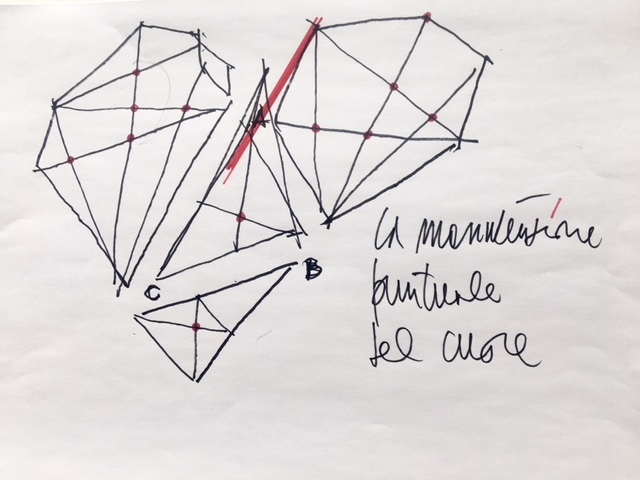 A
B
C
la manutenzione
puntuale
del cuore